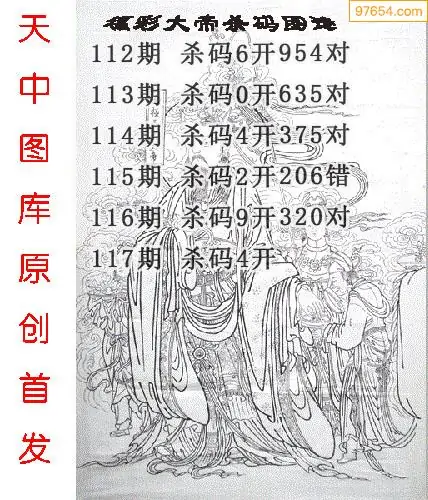 97654.com
福彩大帝杀码图迷
112期 杀码6开954对
113期 杀码0开635对
114期 杀码4开375对
115期 杀码2开206错
116期 杀码9开320对
117期 杀码4开
天中图库原创首发